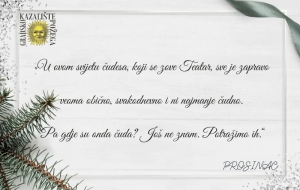 GRADSKO
KAZALIŠTE
POŽEGA
„U ovom svijetu čudesa, koji se zove Teatar, sve je zapravo
veoma obično, svakodnevno i ni najmanje čudno.
"Pa gdje su onda čuda? Još ne znam. Potražimo ih."
PROSINAC